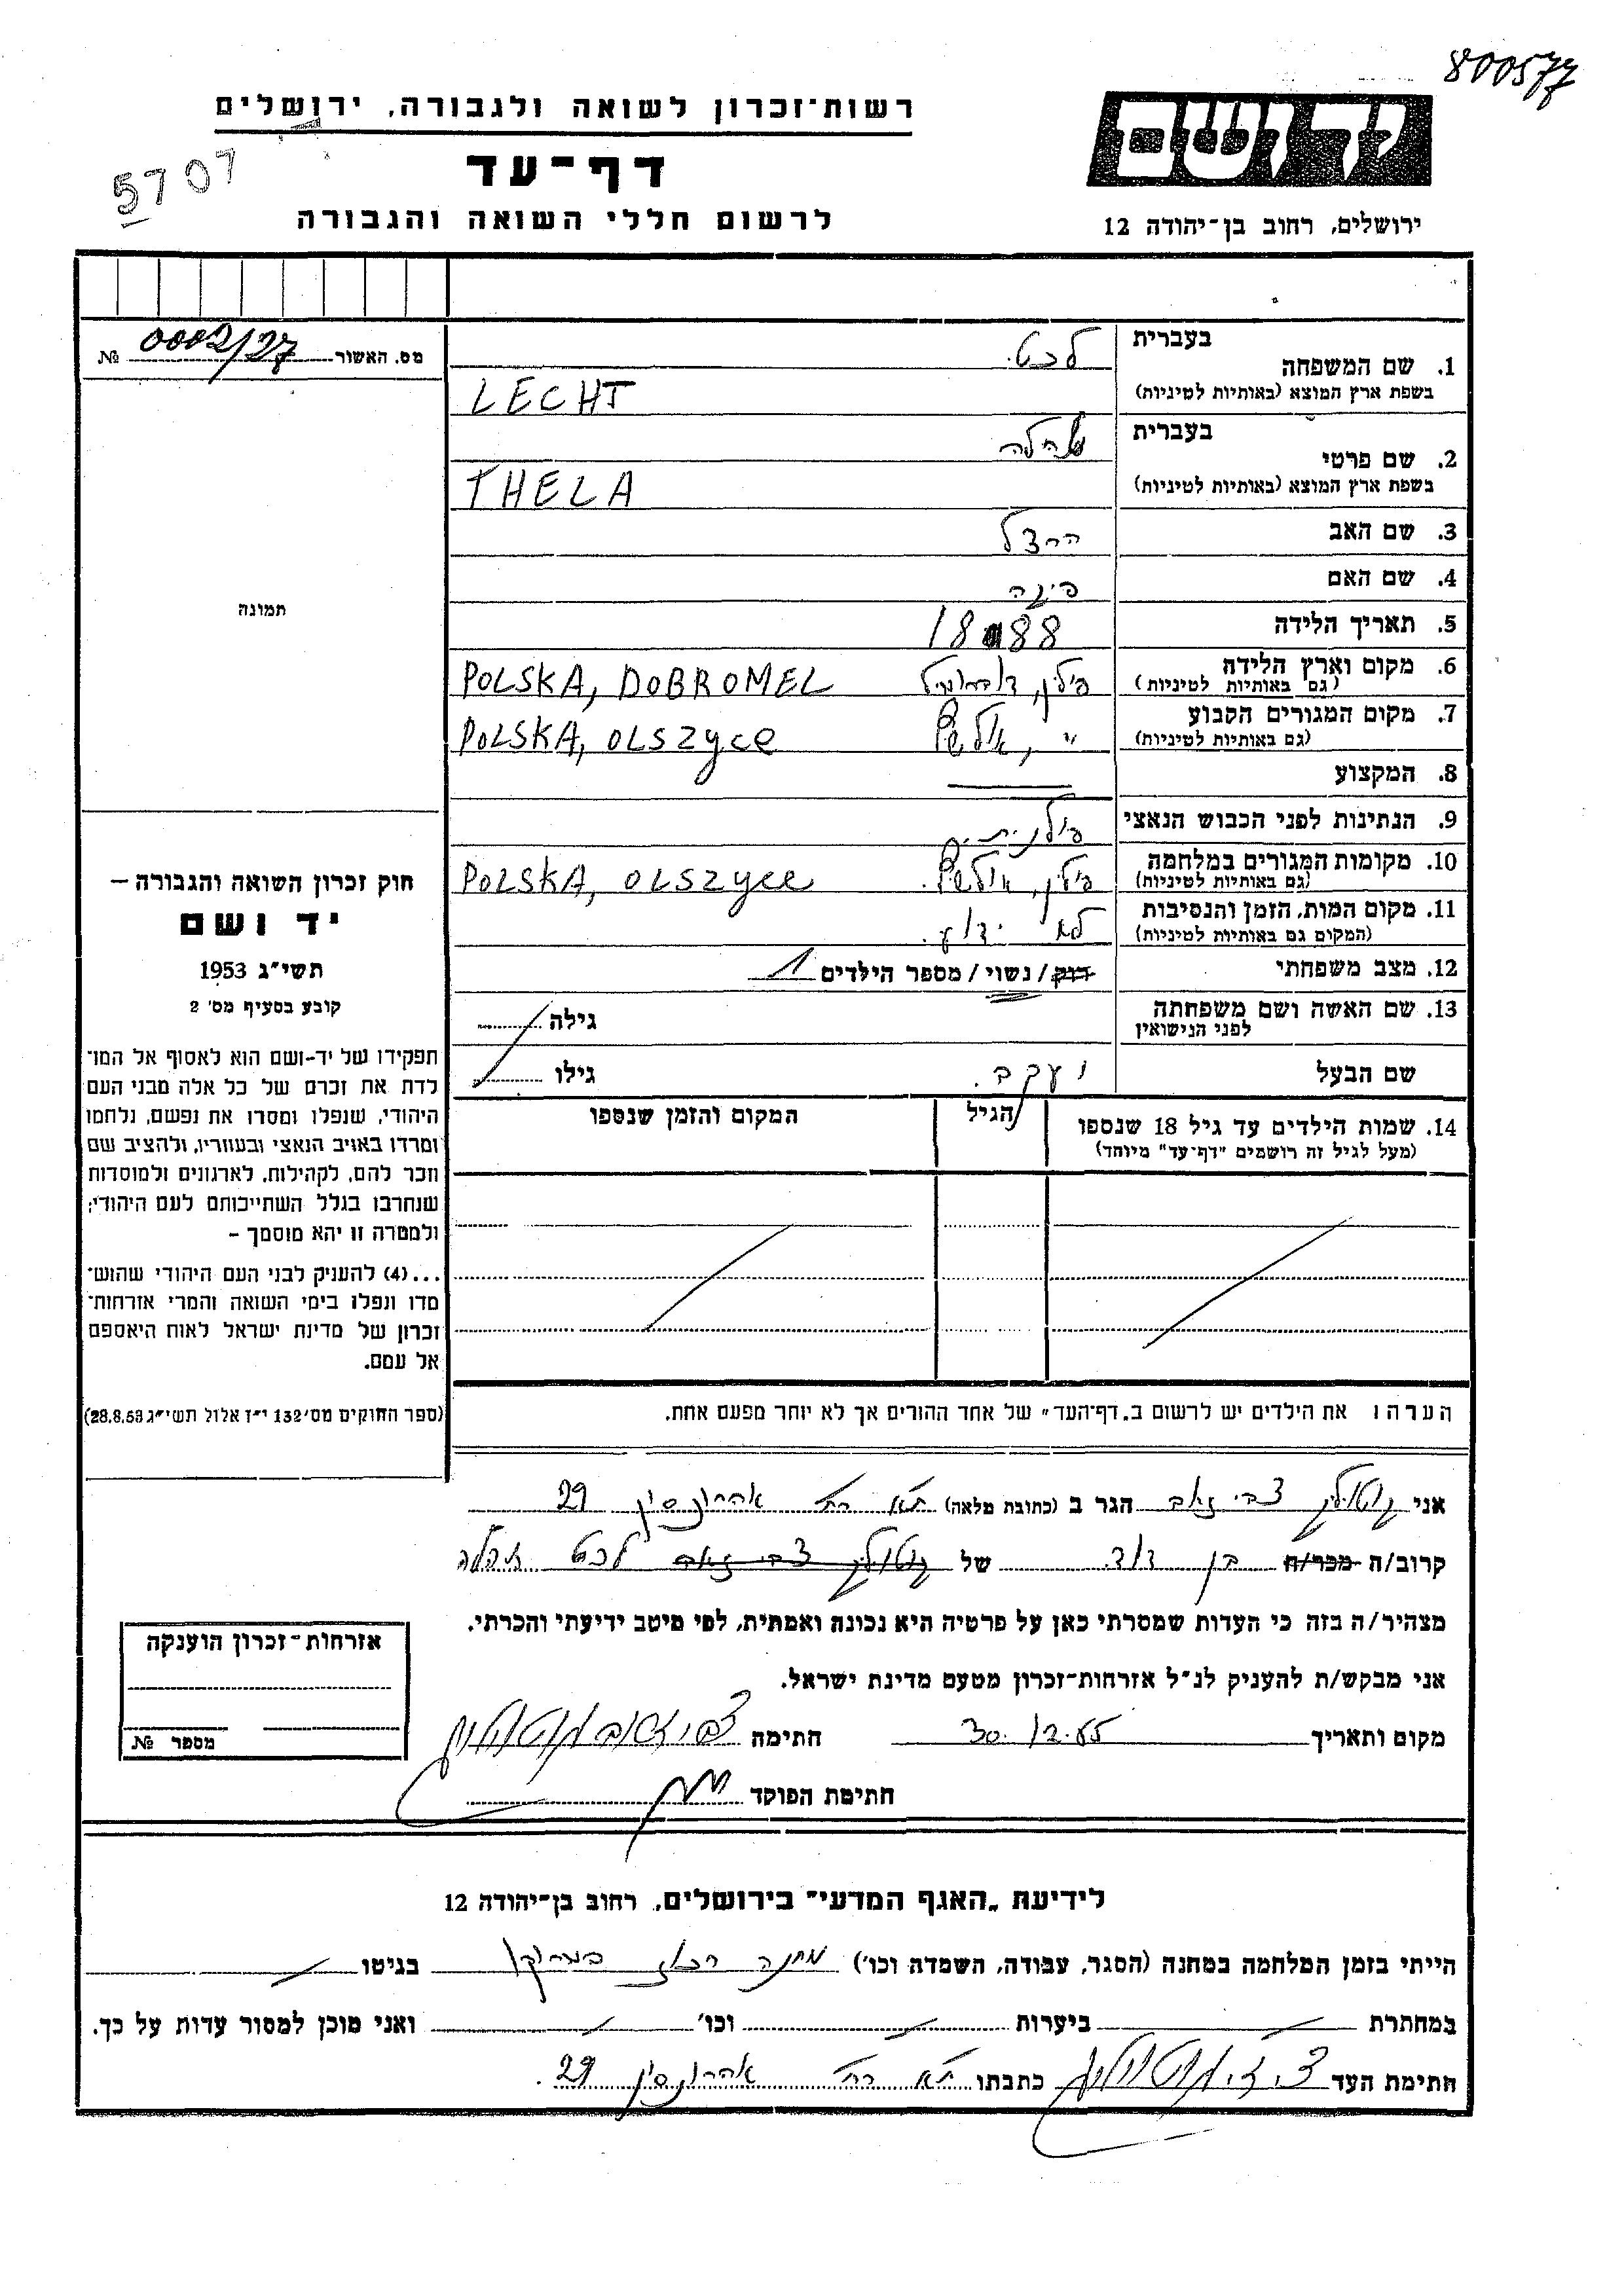 800577
רשות־זכרון לשואה ולגבורה, ירושלים
5707
דף־עד
לרשום חללי השואה והגבורה
יד ושם
ירושלים, רחוב בן־יהודה 12
מס. האשור 0002/27 №
בעברית לכט
1. שם המשפחה
בשפת ארץ המוצא (באותיות לטיניות) LECHT
בעברית
2. שם פרטי
בשפת ארץ המוצא (באותיות לטיניות) THELA
3. שם האב הרצל
4. שם האם
5. תאריך הלידה 1888
6. מקום וארץ הלידה פולין, POLSKA, DOBROMEL
(גם באותיות לטיניות)
7. מקום המגורים הקבוע POLSKA, OLSZYCE
(גם באותיות לטיניות)
8. המקצוע
9. הנתינות לפני הכבוש הנאצי פולנית
10. מקומות המגורים במלחמה פולין, POLSKA, OLSZYCE
(גם באותיות לטיניות)
11. מקום המות, הזמן והנסיבות לא ידוע.
(המקום גם באותיות לטיניות)
12. מצב משפחתי רווק/ נשוי/ מספר הילדים 1
13. שם האשה ושם משפחתה לפני הנישואין גילה
שם הבעל יעקב. גילו
14. שמות הילדים עד גיל 18 שנספו הגיל המקום והזמן שנספו
(מעל לגיל זה רושמים "דף־עד" מיוחד)
הערה: את הילדים יש לרשום ב„דף־העד" של אחד ההורים אך לא יותר מפעם אחת.
תמונה
חוק זכרון השואה והגבורה –
יד ושם
תשי"ג 1953
קובע בסעיף מס' 2
תפקידו של יד-ושם הוא לאסוף אל המו־
לדת את זכרם של כל אלה מבני העם
היהודי, שנפלו ומסרו את נפשם, נלחמו
ומרדו באויב הנאצי ובעוזריו, ולהציב שם
וזכר להם, לקהילות, לארגונים ולמוסדות
שנחרבו בגלל השתייכותם לעם היהודי;
ולמטרה זו יהא מוסמך –
...(4) להעניק לבני העם היהודי שהוש־
מדו ונפלו בימי השואה והמרי אזרחות־
זכרון של מדינת ישראל לאות היאספם
אל עמם.
(ספר החוקים מס' 132 י"ז אלול תשי"ג 28.8.53)
אני צבי זאב הגר ב (כתובת מלאה) ת"א רח' אהרונסון 29
קרוב/ה מכר/ה בן דוד של צבי זאב לכט
מצהיר/ה בזה כי העדות שמסרתי כאן על פרטיה היא נכונה ואמתית, לפי מיטב ידיעתי והכרתי.
אני מבקש/ת להעניק לנ"ל אזרחות־זכרון מטעם מדינת ישראל.
מקום ותאריך 30.12.55 חתימה
חתימת הפוקד
אזרחות־זכרון הוענקה
מספר №
לידיעת „האגף המדעי" בירושלים, רחוב בן־יהודה 12
הייתי בזמן המלחמה במחנה (הסגר, עבודה, השמדה וכו') בגיטו
במחתרת ביערות וכו' ואני מוכן למסור עדות על כך.
חתימת העד כתבתו ת"א רח' אהרונסון 29.